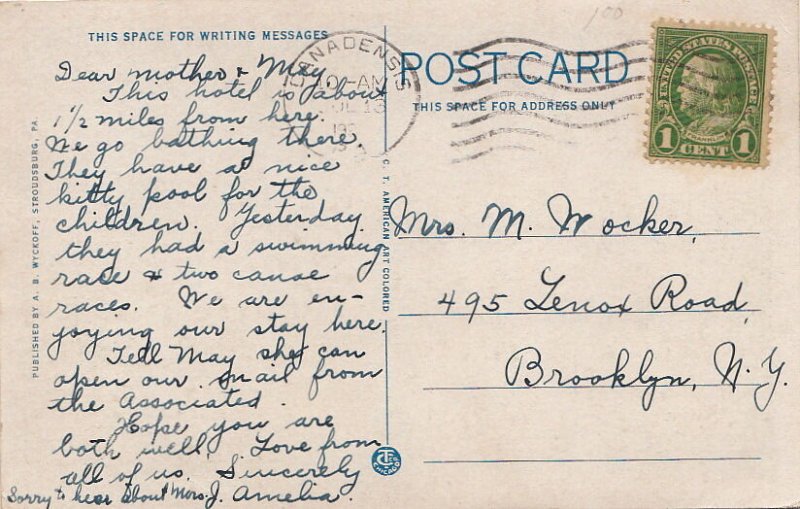 THIS SPACE FOR WRITING MESSAGES
Dear mother & May
This hotel is about
1 1/2 miles from here.
We go bathing there.
They have a nice
kitty pool for the
children. Yesterday
they had a swimming
race & two canoe
races. We are en-
joying our stay here.
Tell May she can
open our mail from
the Associated.
Hope you are
both well. Love from
all of us. Sincerely
Amelia.
Sorry to hear about Mrs. J.
PUBLISHED BY A. B. WYCKOFF, STROUDSBURG, PA.
C. T. AMERICAN ART COLORED
CHICAGO
CANADENSIS
AM
13
POST CARD
THIS SPACE FOR ADDRESS ONLY
100
UNITED STATES POSTAGE
FRANKLIN
1 CENT 1
Mrs. M. Wocker,
495 Lenox Road,
Brooklyn, N.Y.